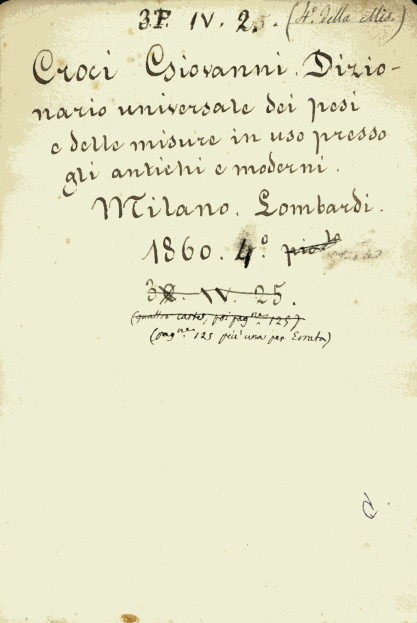 3F. IV. 2. (4º della Mis.)
Croci Giovanni. Dizio-
nario universale dei pesi
e delle misure in uso presso
gli antichi e moderni.
Milano. Lombardi.
1860. 4.º
IV. 25.
(quattro carte, poi pagⁿᵉ 125)
(pagⁿᵉ 125 più una per Errata)